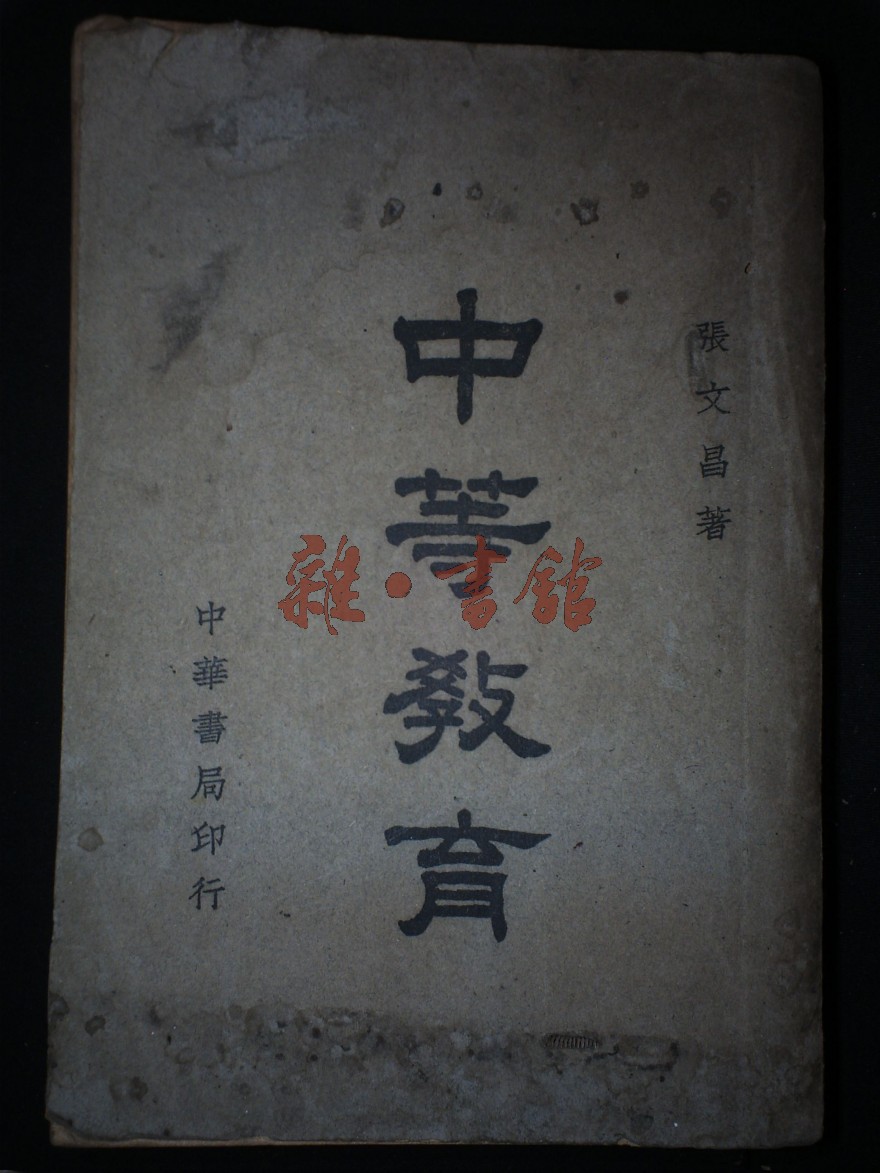 張文昌著
中等教育
中華書局印行
雜·書館